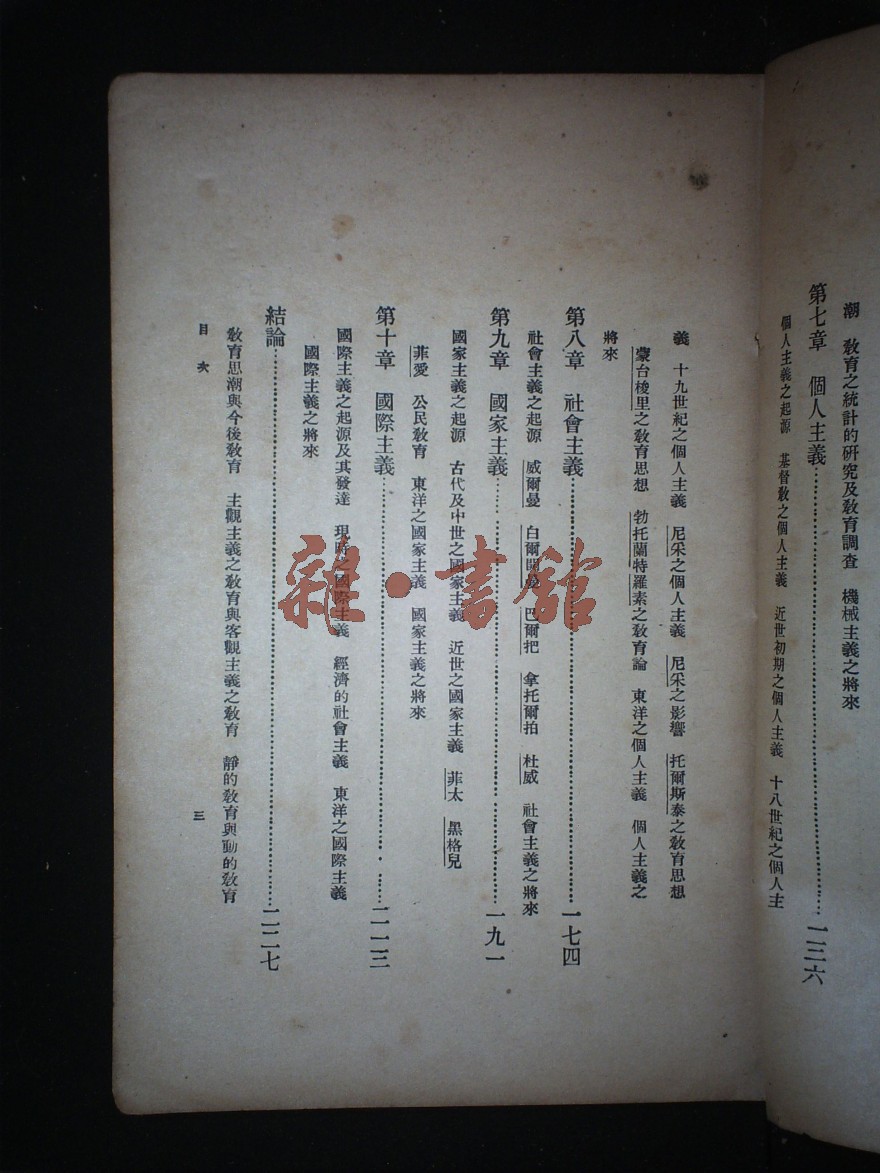 潮　教育之統計的研究及教育調查　機械主義之將來
第七章　個人主義……一三六
個人主義之起源　基督教之個人主義　近世初期之個人主義　十八世紀之個人主
義　十九世紀之個人主義　尼采之個人主義　尼采之影響　托爾斯泰之教育思想
蒙台梭里之教育思想　勃托蘭特羅素之教育論　東洋之個人主義　個人主義之
將來
第八章　社會主義……一七四
社會主義之起源　威爾曼　白爾開曼　巴爾把　拿托爾拍　杜威　社會主義之將來
第九章　國家主義……一九一
國家主義之起源　古代及中世之國家主義　近世之國家主義　菲太　黑格兒
菲愛　公民教育　東洋之國家主義　國家主義之將來
第十章　國際主義……二一三
國際主義之起源及其發達　現時之國際主義　經濟的社會主義　東洋之國際主義
國際主義之將來
結論……二二七
教育思潮與今後教育　主觀主義之教育與客觀主義之教育　靜的教育與動的教育
目次　三
雜·書館